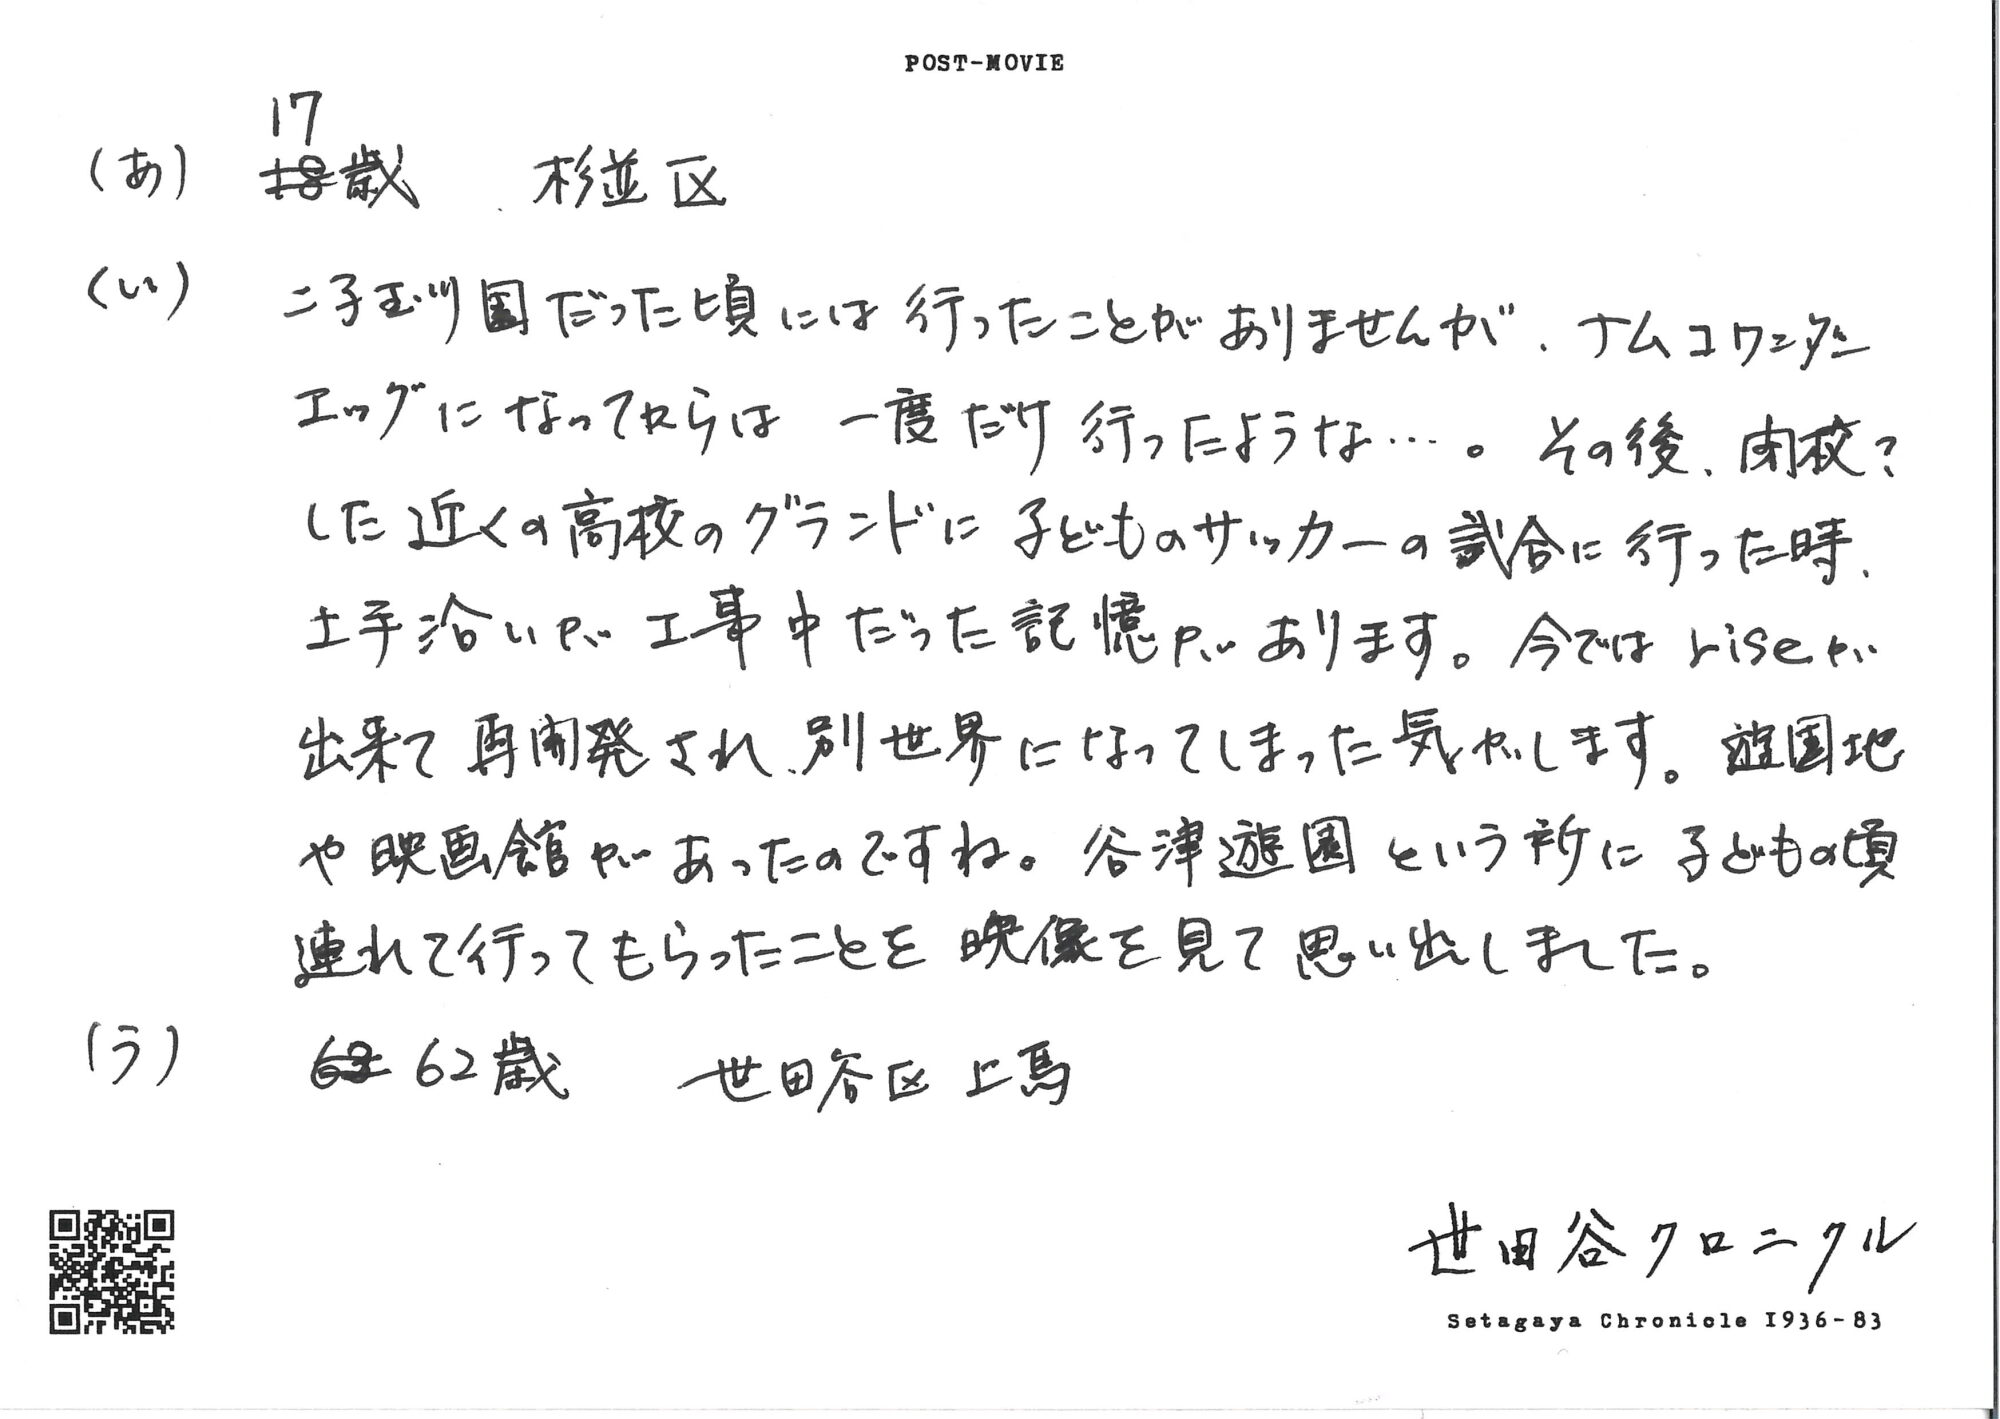 POST-MOVIE
17
(あ) 歳 杉並区
(い) 二子玉川園だった頃には行ったことがありませんが、ナムコワンダー
エッグになってからは一度だけ行ったような…。その後、閉校?
した近くの高校のグランドに子どものサッカーの試合に行った時、
土手沿いが工事中だった記憶があります。今ではriseが
出来て再開発され、別世界になってしまった気がします。遊園地
や映画館があったのですね。谷津遊園という所に子どもの頃
連れて行ってもらったことを映像を見て思い出しました。
(う) 62歳 世田谷区上馬
世田谷クロニクル
Setagaya Chronicle 1936-83